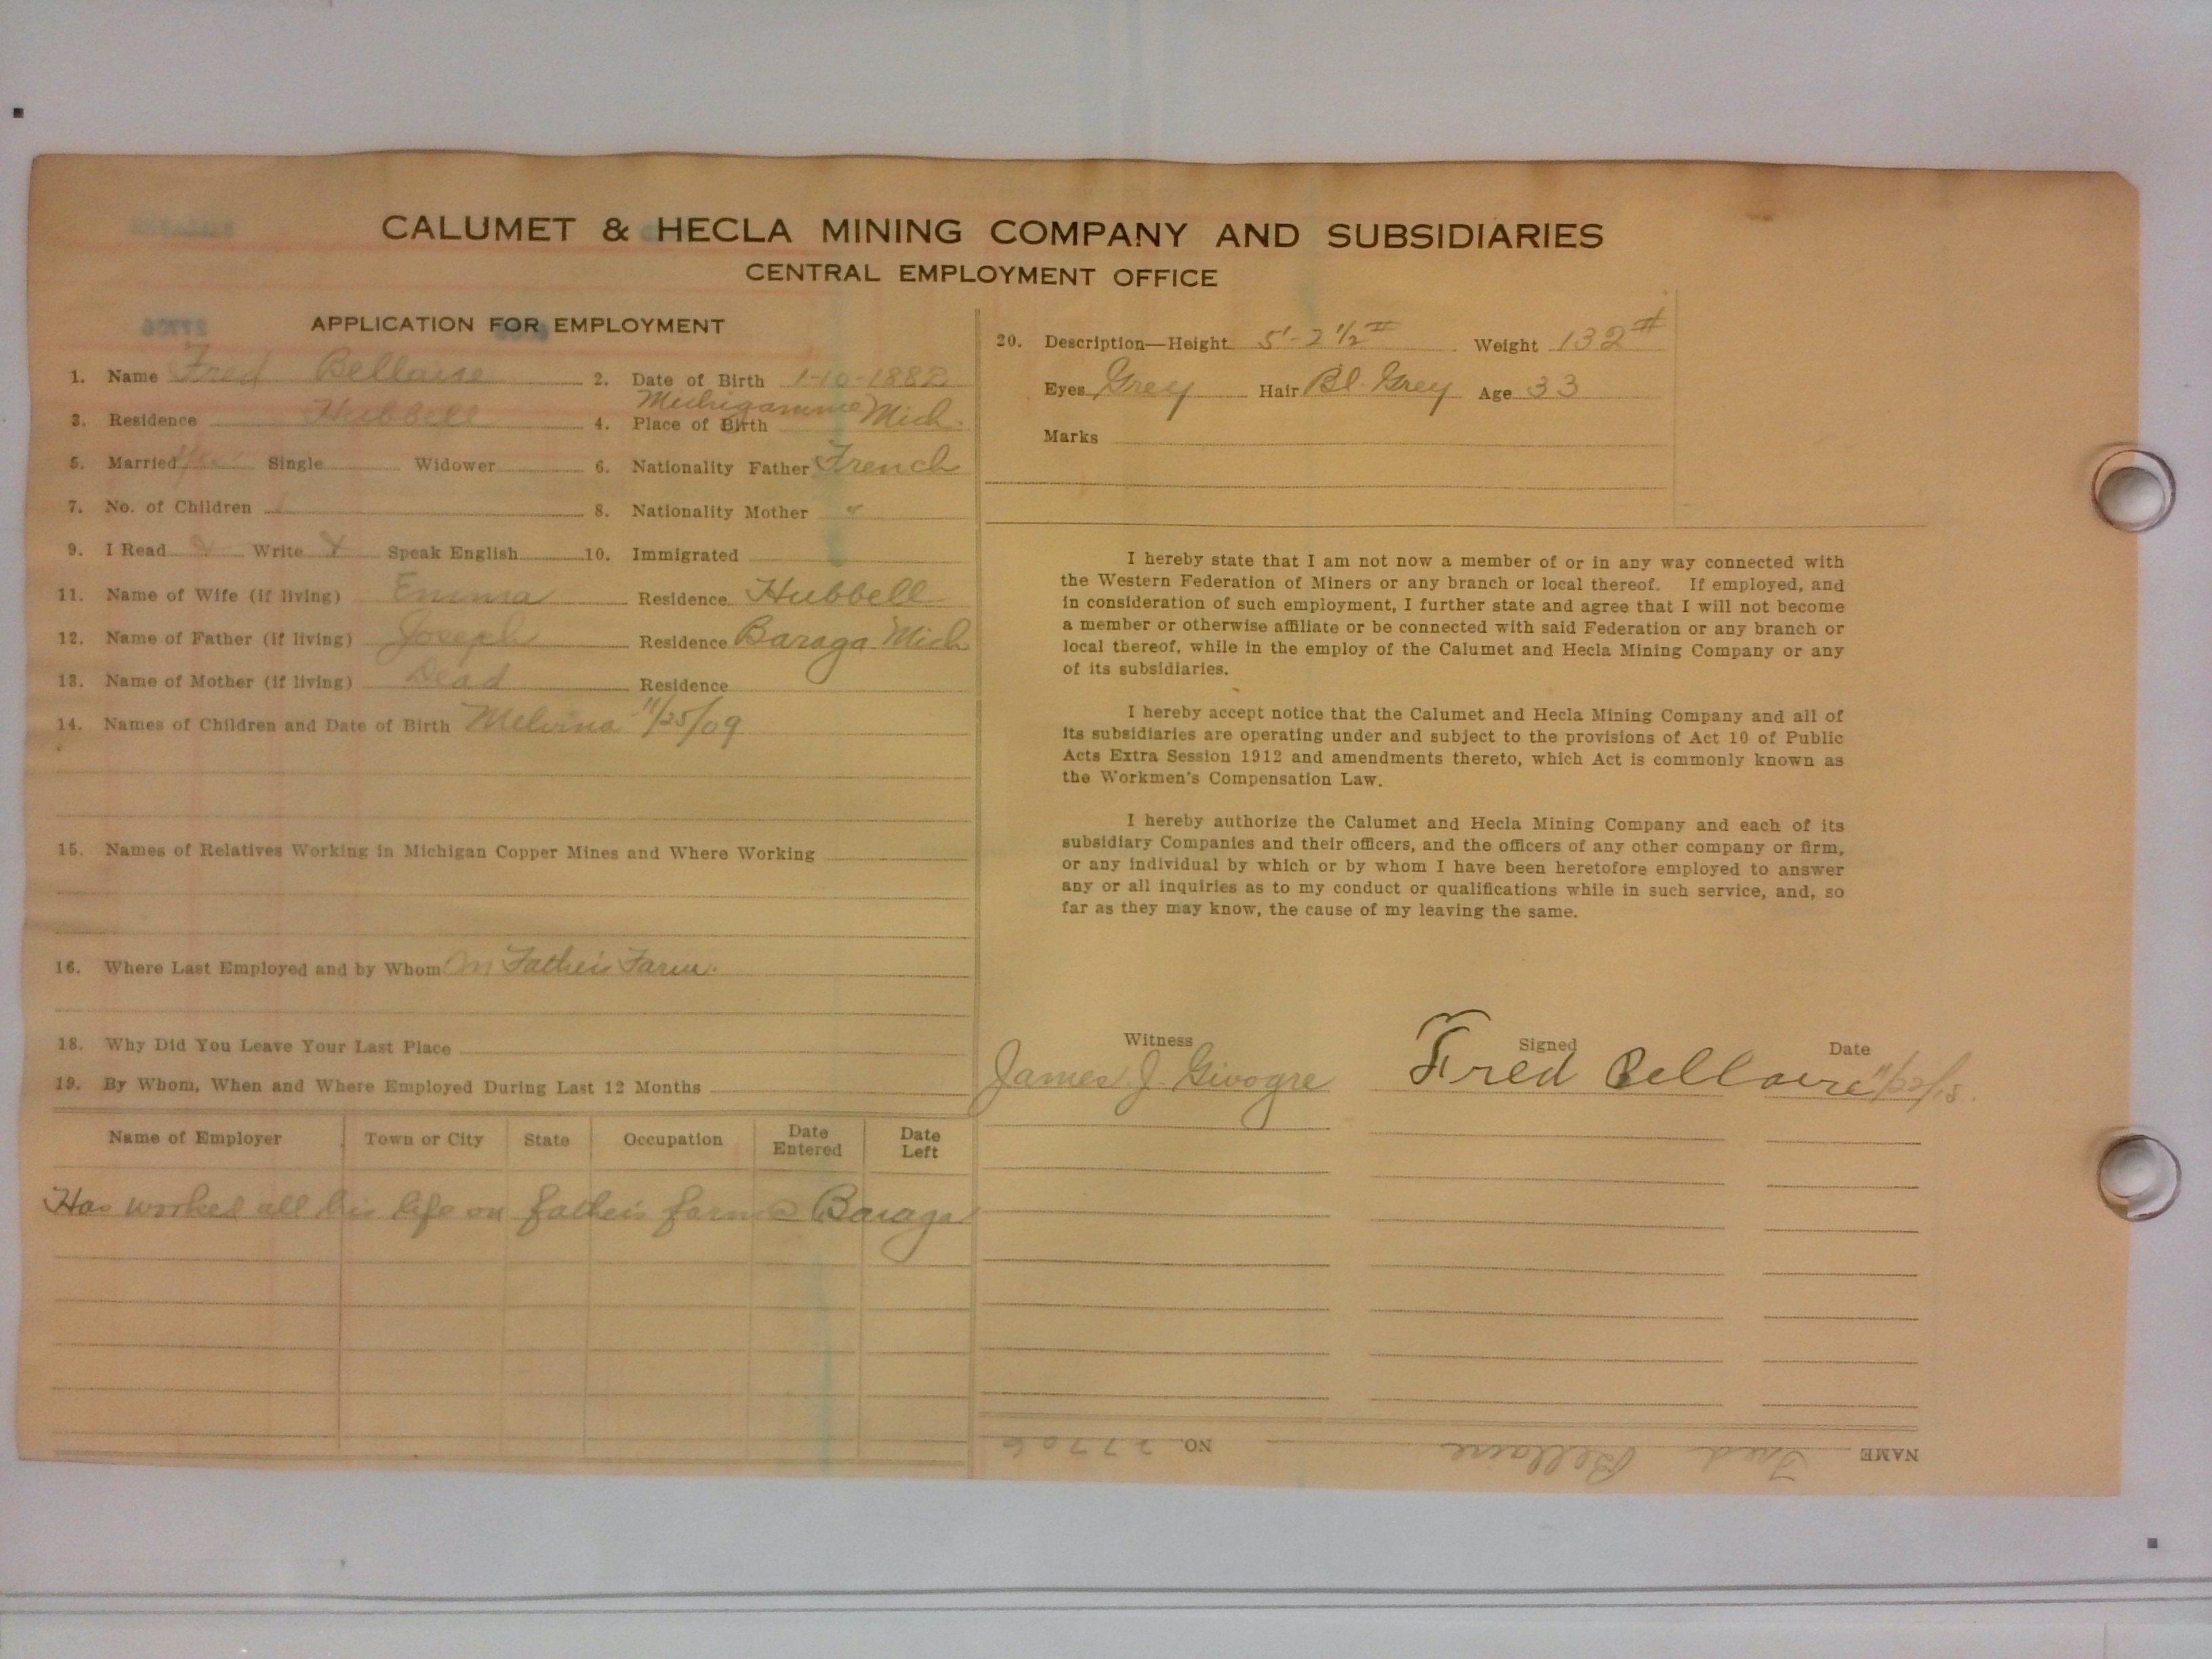 CALUMET & HECLA MINING COMPANY AND SUBSIDIARIES
CENTRAL EMPLOYMENT OFFICE
APPLICATION FOR EMPLOYMENT
1. Name Fred Bellaire 2. Date of Birth 1-10-1882
3. Residence Hubbell 4. Place of Birth Michigamme Mich.
5. Married Yes Single Widower 6. Nationality Father French
7. No. of Children 1 8. Nationality Mother "
9. I Read Write Speak English 10. Immigrated
11. Name of Wife (if living) Emma Residence Hubbell
12. Name of Father (if living) Joseph Residence Baraga Mich
13. Name of Mother (if living) Dead Residence
14. Names of Children and Date of Birth Melvina - 11/25/09
15. Names of Relatives Working in Michigan Copper Mines and Where Working
16. Where Last Employed and by Whom On Father's Farm.
18. Why Did You Leave Your Last Place
19. By Whom, When and Where Employed During Last 12 Months
Name of Employer Town or City State Occupation Date Entered Date Left
Has worked all his life on father's farm @ Baraga
20. Description—Height 5'-2 1/2" Weight 132#
Eyes Grey Hair Bl. Grey Age 33
Marks
I hereby state that I am not now a member of or in any way connected with
the Western Federation of Miners or any branch or local thereof. If employed, and
in consideration of such employment, I further state and agree that I will not become
a member or otherwise affiliate or be connected with said Federation or any branch or
local thereof, while in the employ of the Calumet and Hecla Mining Company or any
of its subsidiaries.
I hereby accept notice that the Calumet and Hecla Mining Company and all of
its subsidiaries are operating under and subject to the provisions of Act 10 of Public
Acts Extra Session 1912 and amendments thereto, which Act is commonly known as
the Workmen's Compensation Law.
I hereby authorize the Calumet and Hecla Mining Company and each of its
subsidiary Companies and their officers, and the officers of any other company or firm,
or any individual by which or by whom I have been heretofore employed to answer
any or all inquiries as to my conduct or qualifications while in such service, and, so
far as they may know, the cause of my leaving the same.
Witness Signed Date
James J. Givogre Fred Bellaire 11/22/15.
NAME Fred Bellaire NO. 27706